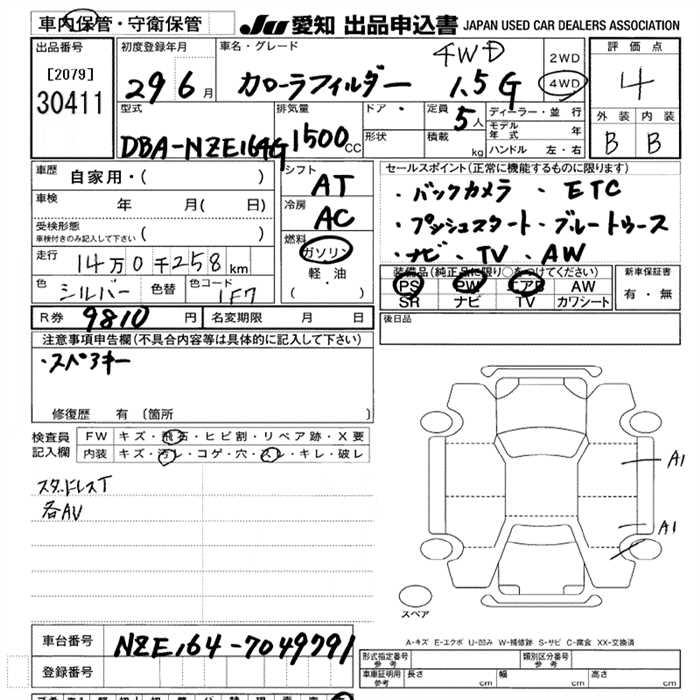 車内保管・守衛保管
JU 愛知 出品申込書 JAPAN USED CAR DEALERS ASSOCIATION
出品番号
[2079]
30411
初度登録年月
29 6 月
車名・グレード
カローラフィルダー 1.5G
4WD
2WD
4WD
評価点
4
外装 内装
B B
型式
DBA-NZE164G
排気量
1500 CC
ドア・
形状
定員
5 人
積載 kg
ディーラー・並行
モデル年式 年
ハンドル 左・右
車歴
自家用・( )
車検 年 月( 日)
受検形態
車検付きのみ記入して下さい ( )
走行 14万0千258 km
色 シルバー 色替 色コード 1F7
シフト
AT
冷房
AC
燃料
ガソリン
軽・油
( ・ )
セールスポイント(正常に機能するものに限ります)
・バックカメラ ・ETC
・プッシュスタート・ブルートゥース
・ナビ・TV・AW
装備品(純正品に限り○をつけてください)
PS PW エアB AW
SR ナビ TV カワシート
新車保証書
有・無
R券 9810 円 名変期限 月 日
後日品
注意事項申告欄(不具合内容等は具体的に記入して下さい)
・スペアキー
修復歴 有〔箇所 〕
検査員記入欄
FW キズ・飛石・ヒビ割・リペア跡・X要
内装 キズ・汚レ・コゲ・穴・スレ・キレ・破レ
スタッドレスT
各AU
A1
A1
スペア
A-キズ E-エクボ U-凹み W-補修跡 S-サビ C-腐食 XX-交換済
車台番号 NZE164-7049791
登録番号
形式指定番号 参考
類別区分番号 参考
車庫証明用 参考 長さ cm 幅 cm 高さ cm